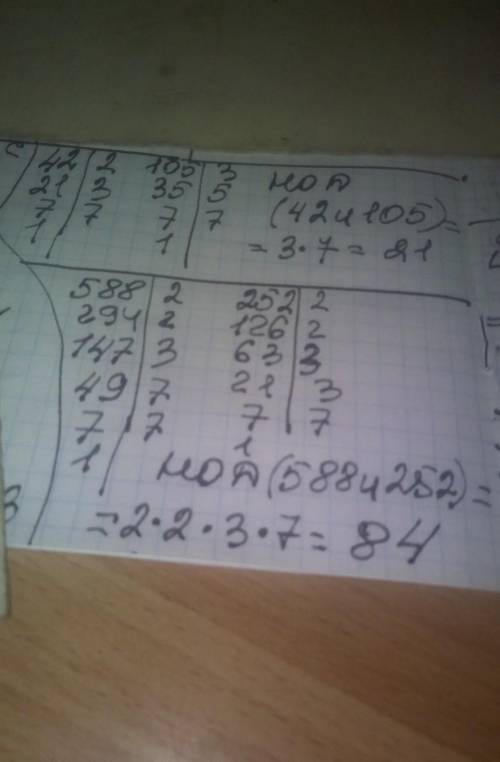 42 | 2 105 | 3 НОД
21 | 3 35 | 5 (42 и 105) =
7 | 7 7 | 7 = 3·7 = 21
1 | 1 |
588 | 2 252 | 2
294 | 2 126 | 2
147 | 3 63 | 3
49 | 7 21 | 3
7 | 7 7 | 7
1 | 1
НОД (588 и 252) =
= 2·2·3·7 = 84